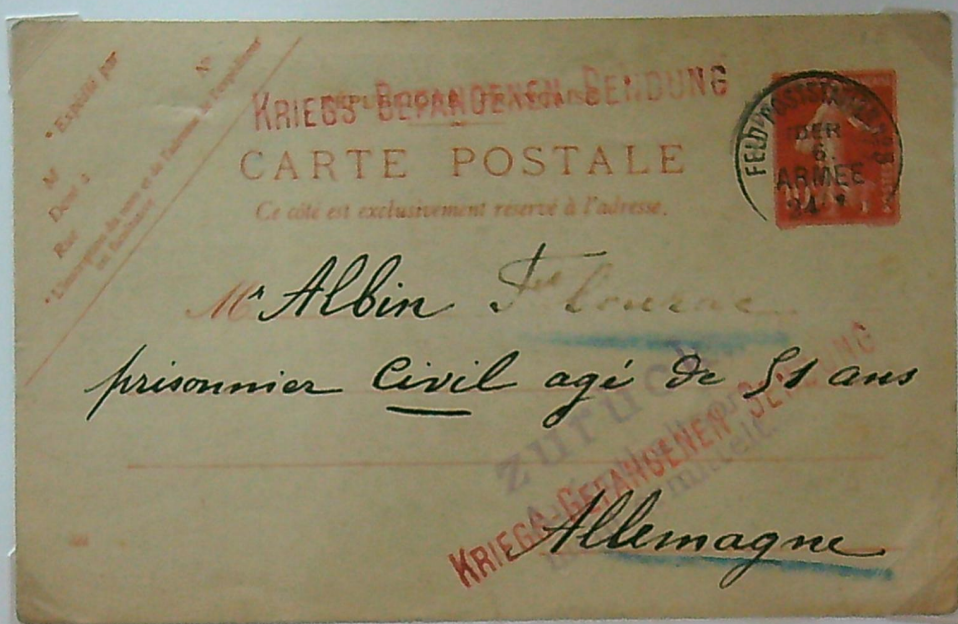 "Expédié par
M
Nº
Demt à
Rue
"L'inscription du nom et de l'adresse de l'expéditeur
est facultative
KRIEGS-GEFANGENEN-SENDUNG
RÉPUBLIQUE FRANÇAISE
CARTE POSTALE
Ce côté est exclusivement réservé à l'adresse.
FELD-POSTSTATION No. 3
DER
6.
ARMEE
24
10
Mr Albin
prisonnier Civil agé de 51 ans
zurück
KRIEGS-GEFANGENEN SENDUNG
Allemagne